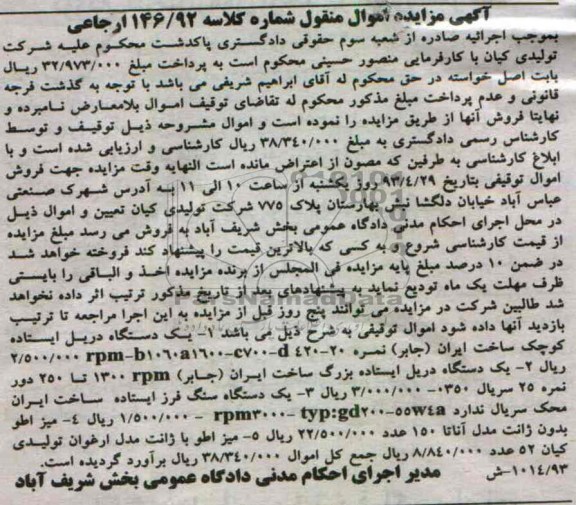 آگهی مزایده اموال منقول شماره کلاسه ۱۴۶/۹۲ ارجاعی
بموجب اجرائیه صادره از شعبه سوم حقوقی دادگستری پاکدشت محکوم علیه شرکت
تولیدی کیان با کارفرمایی منصور حسینی محکوم است به پرداخت مبلغ ۳۲/۹۷۳/۰۰۰ ریال
بابت اصل خواسته در حق محکوم له آقای ابراهیم شریفی می باشد با توجه به گذشت فرجه
قانونی و عدم پرداخت مبلغ مذکور محکوم له تقاضای توقیف اموال بلامعارض نامبرده و
نهایتا فروش آنها از طریق مزایده را نموده است و اموال مشروحه ذیل توقیف و توسط
کارشناس رسمی دادگستری به مبلغ ۳۸/۳۴۰/۰۰۰ ریال کارشناسی و ارزیابی شده است و با
ابلاغ کارشناسی به طرفین که مصون از اعتراض مانده است النهایه وقت مزایده جهت فروش
اموال توقیفی بتاریخ ۹۳/۴/۲۹ روز یکشنبه از ساعت ۱۰ الی ۱۱ به آدرس شهرک صنعتی
عباس آباد خیابان دلگشا نبش بهارستان پلاک ۷۷۵ شرکت تولیدی کیان تعیین و اموال ذیل
در محل اجرای احکام مدنی دادگاه عمومی بخش شریف آباد به فروش می رسد مبلغ مزایده
از قیمت کارشناسی شروع و به کسی که بالاترین قیمت را پیشنهاد کند فروخته خواهد شد
در ضمن ۱۰ درصد مبلغ پایه مزایده فی المجلس از برنده مزایده اخذ و الباقی را بایستی
ظرف مهلت یک ماه تودیع نماید به پیشنهادهای بعد از تاریخ مذکور ترتیب اثر داده نخواهد
شد طالبین شرکت در مزایده می توانند پنج روز قبل از مزایده به این اجرا مراجعه تا ترتیب
بازدید آنها داده شود اموال توقیفی به شرح ذیل می باشد ۱- یک دستگاه دریل ایستاده
کوچک ساخت ایران (جابر) نمره ۲۰-۴۲۰ rpm-b۱۰۶۰a۱۶۰۰-c۷۰۰-d ۲/۵۰۰/۰۰۰
ریال ۲- یک دستگاه دریل ایستاده بزرگ ساخت ایران (جابر) rpm ۱۳۰۰ تا ۲۵۰ دور
نمره ۲۵ سریال ۰۳۵۰- ۳/۰۰۰/۰۰۰ ریال ۳- یک دستگاه سنگ فرز ایستاده ساخت ایران
محک سریال ندارد typ:gd۲۰۰-۵۵w٤a -rpm۳۰۰۰ - ۱/۵۰۰/۰۰۰ ریال ٤- میز اطو
بدون ژانت مدل آناتا ۱۵۰ عدد ۲۲/۵۰۰/۰۰۰ ریال ۵- میز اطو با ژانت مدل ارغوان تولیدی
کیان ۵۲ عدد ۸/۸۴۰/۰۰۰ ریال جمع کل اموال ۳۸/۳۴۰/۰۰۰ ریال برآورد گردیده است.
۱۰۱٤/۹۳-ش مدیر اجرای احکام مدنی دادگاه عمومی بخش شریف آباد